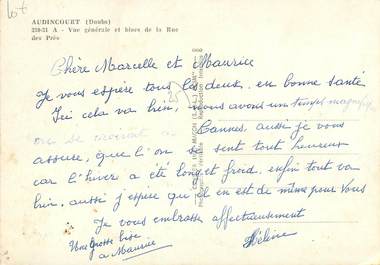 lot
AUDINCOURT (Doubs)
210-31 A - Vue générale et blocs de la Rue
des Prés
Chère Marcelle et Maurice
Je vous espère tous les deux, en bonne santé
Ici cela va bien, nous avons un temps magnifique
on se croirait à Cannes, aussi je vous
assure, que l'on se sent tout heureux
car l'hiver a été long et froid, enfin tout va
bien, aussi j'espère qu'il en est de même pour vous
Je vous embrasse affectueusement
Une Grosse bise
a Maurice
Hélène